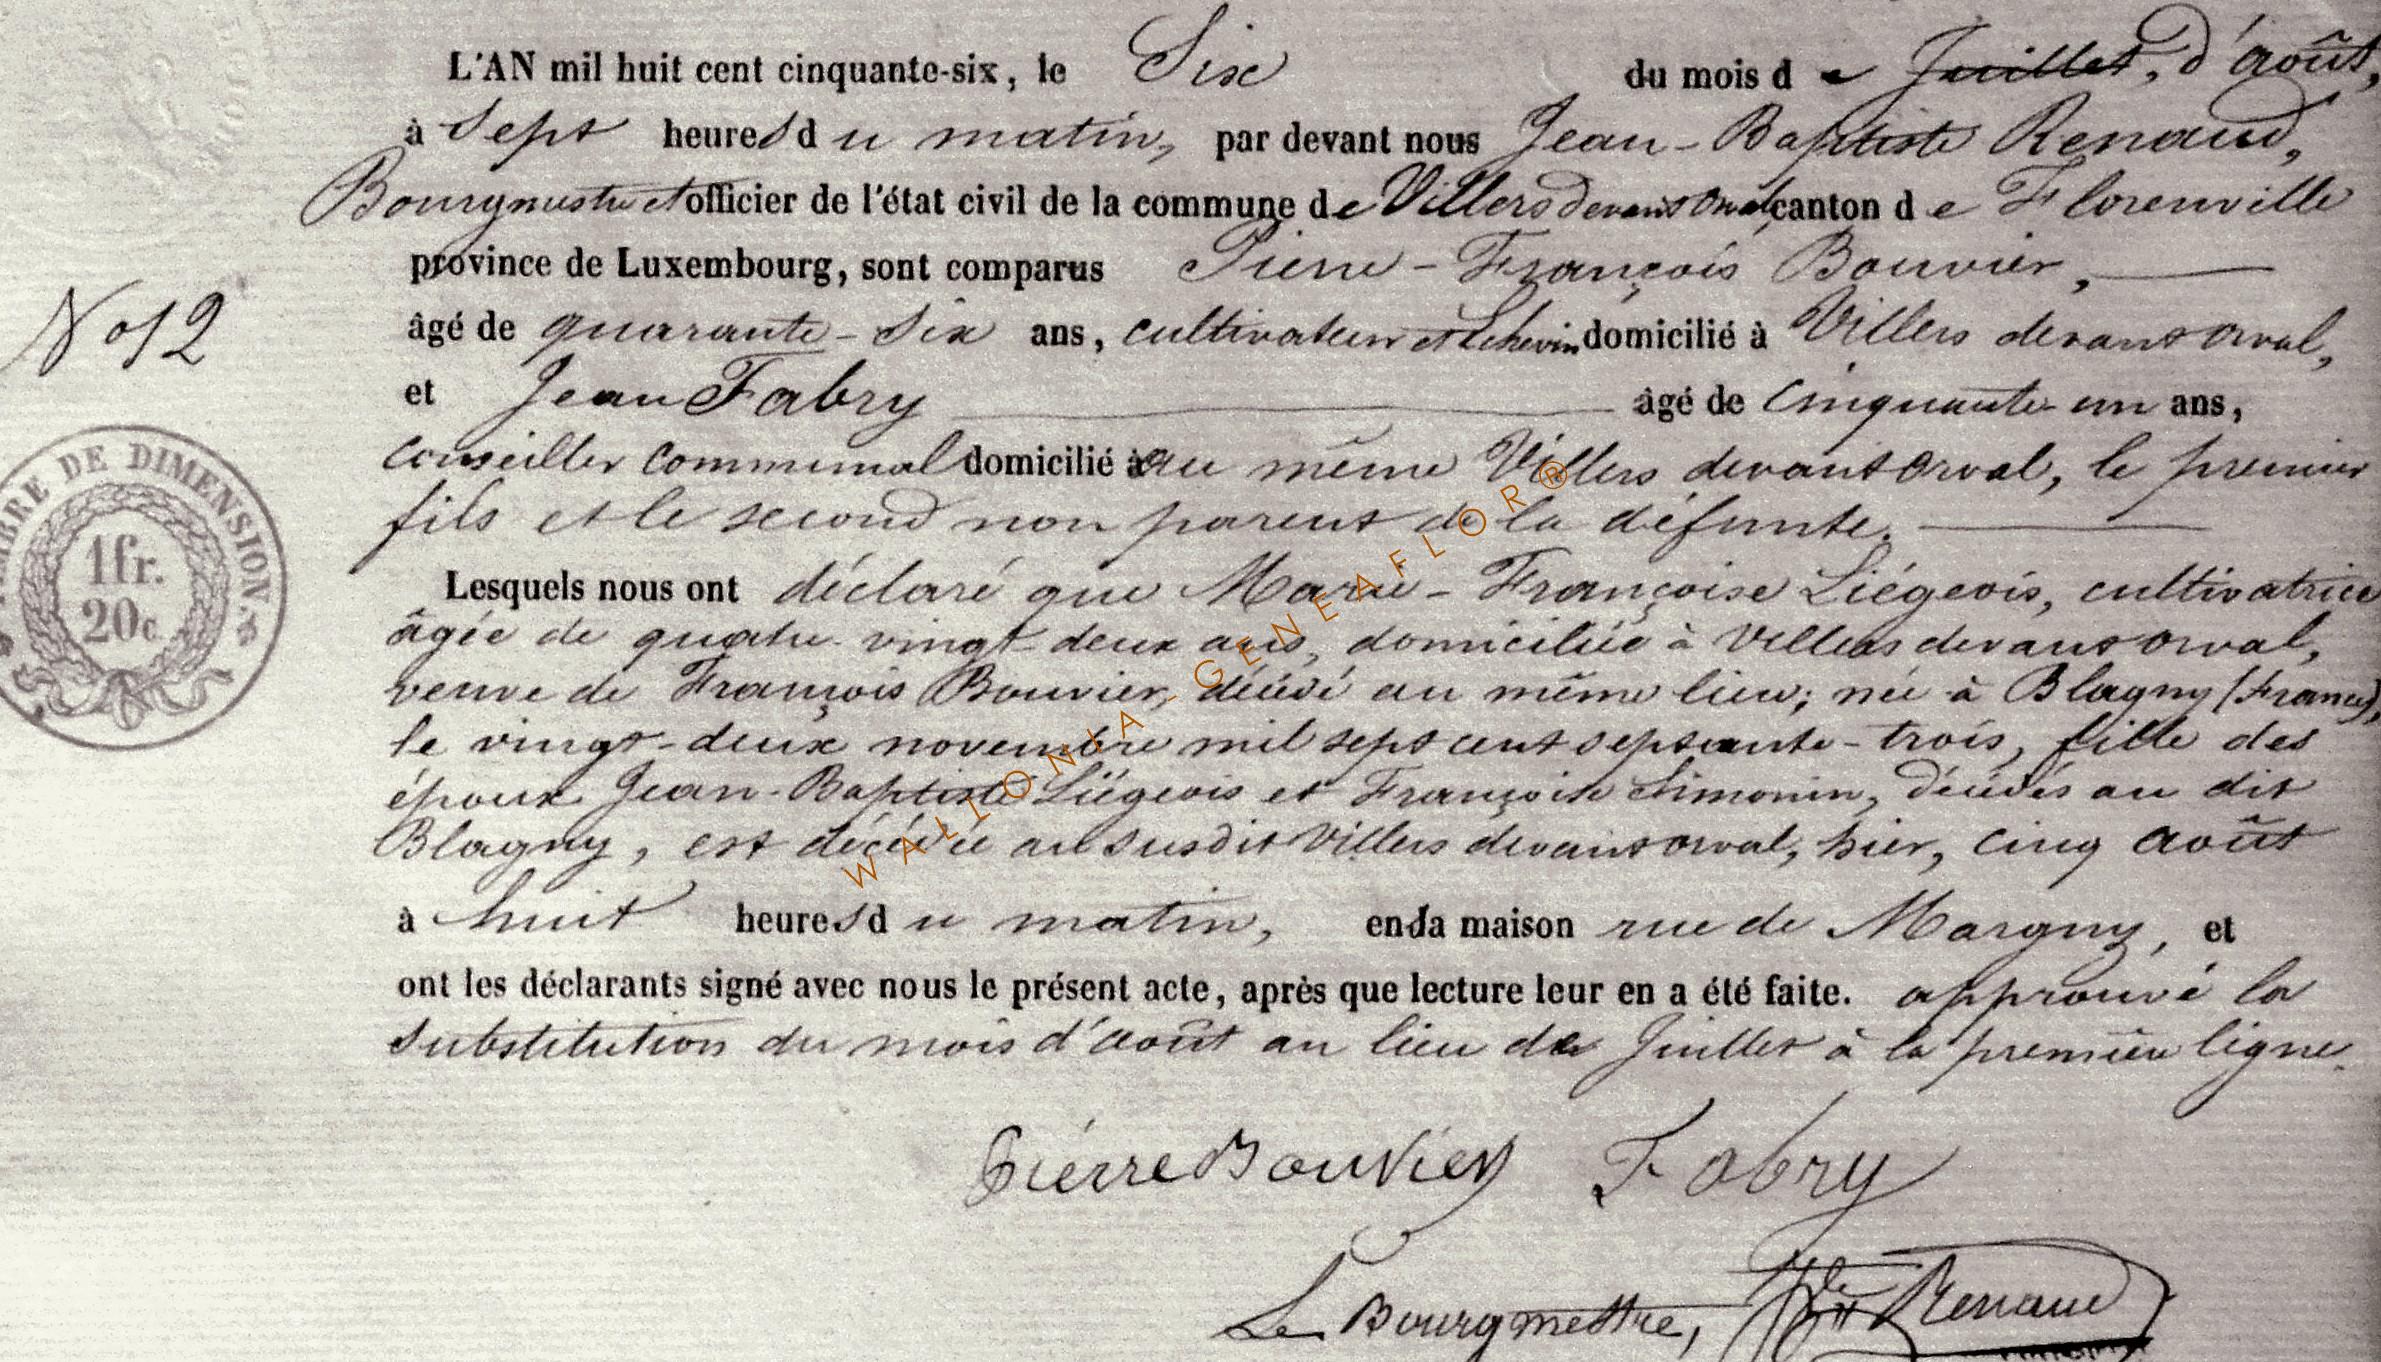 L'AN mil huit cent cinquante-six, le Six du mois de Juillet, d'août,
à sept heures du matin, par devant nous Jean-Baptiste Renaud,
Bourgmestre et officier de l'état civil de la commune de Villers devant Orval, canton de Florenville
province de Luxembourg, sont comparus Pierre-François Bouvier,
N° 12
âgé de quarante-six ans, cultivateur et Echevin domicilié à Villers devant Orval,
et Jean Fabry âgé de cinquante-un ans,
conseiller communal domicilié au même Villers devant Orval, le premier
fils et le second non parent de la défunte.
TIMBRE DE DIMENSION.
1fr.
20c
Lesquels nous ont déclaré que Marie-Françoise Liégeois, cultivatrice
âgée de quatre-vingt-deux ans, domiciliée à Villers devant Orval,
veuve de François Bouvier, décédé au même lieu; née à Blagny (France),
le vingt-deux novembre mil sept cent septante-trois, fille des
époux Jean-Baptiste Liégeois et Françoise Simonin, décédés au dit
Blagny, est décédée au susdit Villers devant Orval, hier, cinq août
à huit heures du matin, en la maison rue de Margny, et
ont les déclarants signé avec nous le présent acte, après que lecture leur en a été faite. approuvé la
substitution du mois d'août au lieu de Juillet à la première ligne.
Pierre Bouvier Fabry
Le Bourgmestre, Renaud
WALLONIA-GENEAFLOR®